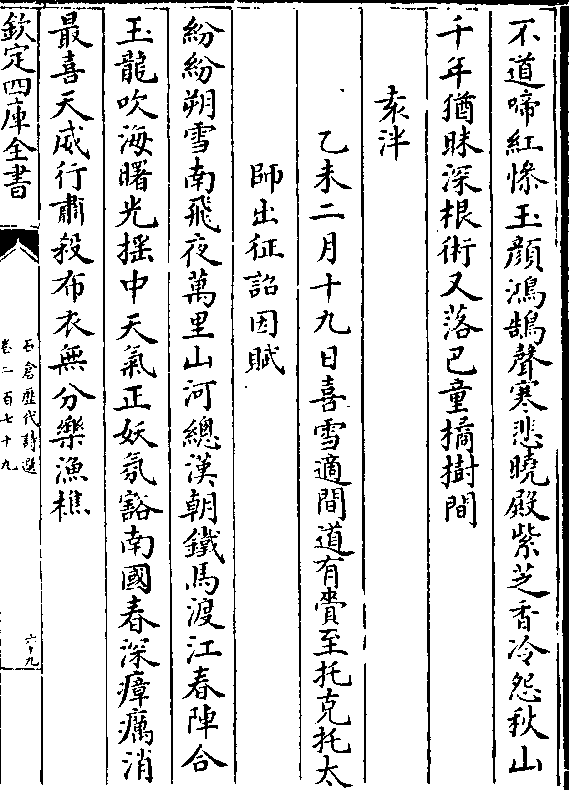 不道啼紅慘玉顔鴻鵠聲寒悲曉殿紫芝香冷怨秋山
千年猶昧深根術又落巴童橘樹間
袁泮
乙未二月十九日喜雪適間道有賫至托克托太
師出征詔因賦
紛紛朔雪南飛夜萬里山河總漢朝鐵馬渡江春陣合
玉龍吹海曙光揺中天氣正妖氛豁南國春深瘴癘消
最喜天威行肅殺布衣無分樂漁樵
欽定四庫全書
石倉歷代詩選
卷二百七十九
六十九